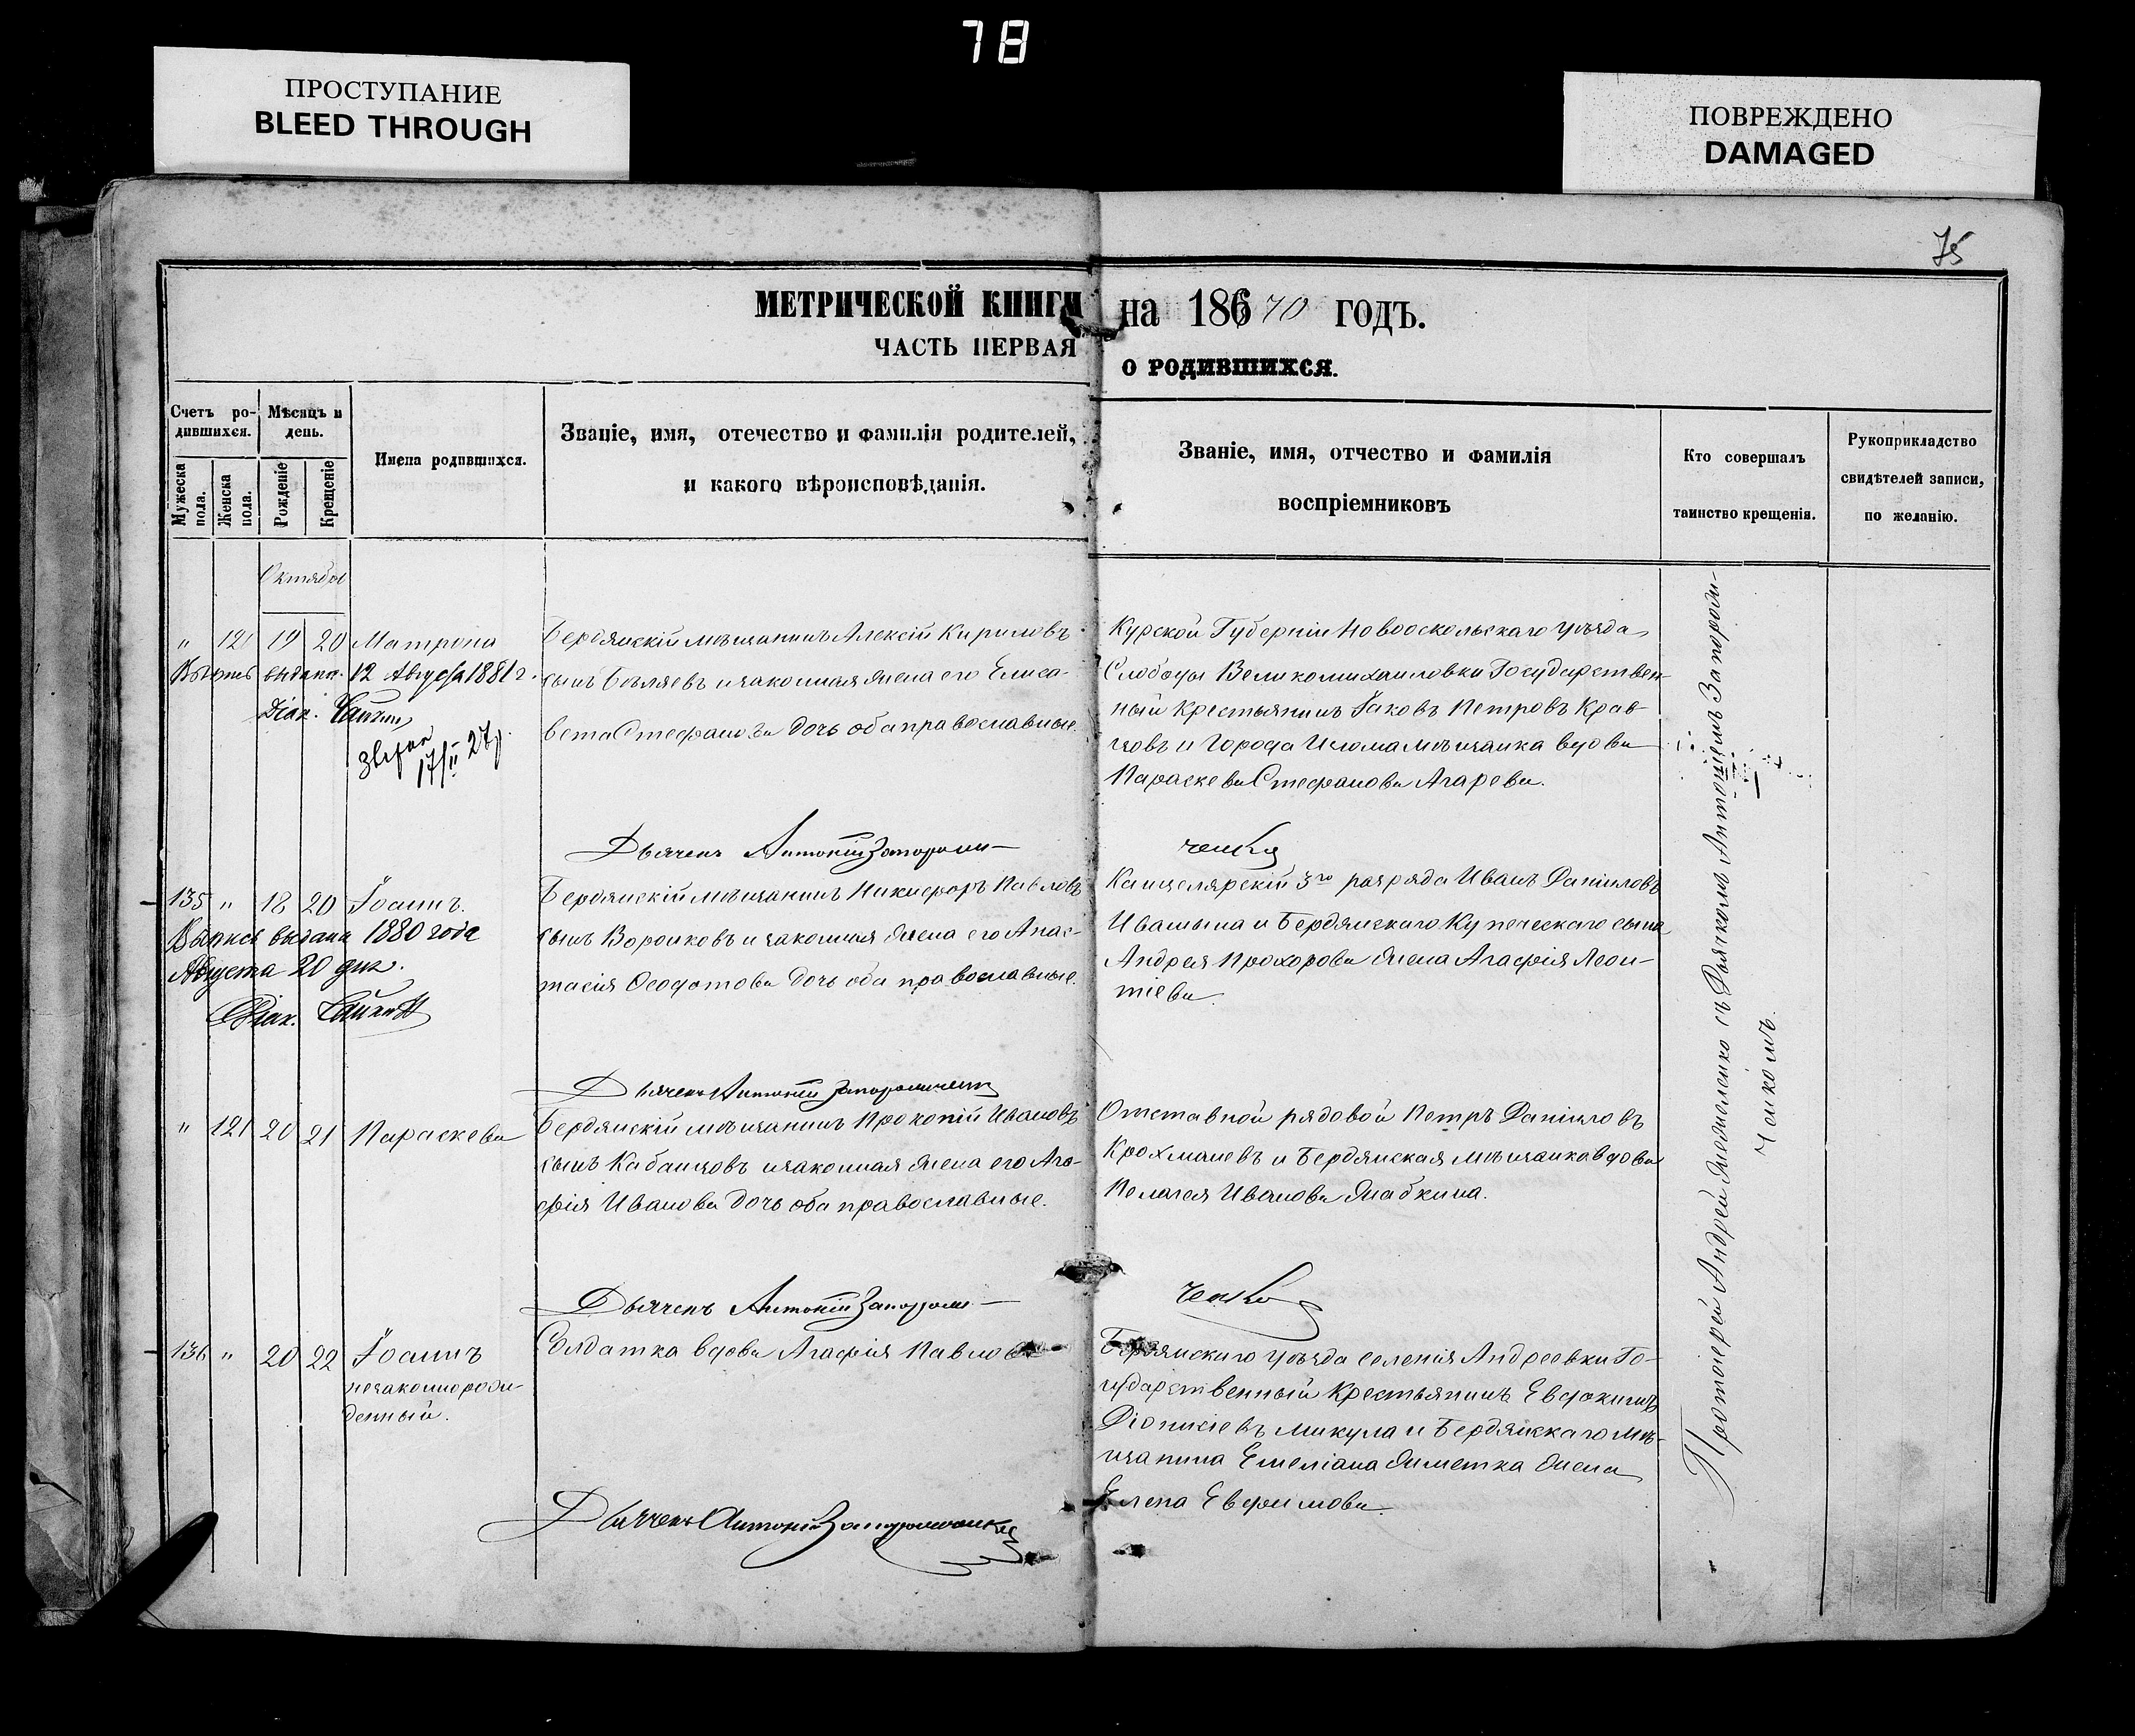 78
ПРОСТУПАНИЕ
BLEED THROUGH
ПОВРЕЖДЕНО
DAMAGED
75
МЕТРИЧЕСКОЙ КНИГИ на 18670 ГОДЪ.
ЧАСТЬ ПЕРВАЯ О РОДИВШИХСЯ.
Счетъ ро-
дившихся.
Мѣсяцъ и
день.
Мужеска пола.
Женска пола.
Рожденіе
Крещеніе
Имена родившихся.
Званіе, имя, отечество и фамилія родителей,
и какого вѣроисповѣданія.
Званіе, имя, отчество и фамилія
воспріемниковъ
Кто совершалъ
таинство крещенія.
Рукоприкладство
свидѣтелей записи,
по желанію.
Октябрь
" 120 19 20 Матрона
выдана 12 Августа 1881 г.
Діак.
17/II 27 г.
Бердянскій мѣщанинъ Алексій Кириловъ
сынъ Бѣляевъ и законная жена его Елиса-
вета Стефанова дочь оба православные.
Курской Губерніи Новооскольскаго уѣзда
Слободы Великомихаиловки Государствен-
ный Крестьянинъ Іаковъ Петровъ Крав-
цовъ и Города Изюма мѣщанка вдова
Параскева Стефанова Агарева.
Дьячекъ Антоній Запорожченко
135 " 18 20 Іоаннъ.
Выпись выдана 1880 года
Августа 20 дня.
Діак.
Бердянскій мѣщанинъ Никифоръ Павловъ
сынъ Воронковъ и законная жена его Анас-
тасія Ѳеодотова дочь оба православные.
Канцелярскій 3го разряда Иванъ Даніиловъ
Ивашына и Бердянскаго Купеческаго сына
Андрея Прохорова жена Агафія Леон-
тіева.
Дьячекъ Антоній Запорожченко
" 121 20 21 Параскева
Бердянскій мѣщанинъ Прокопій Ивановъ
сынъ Кабанцовъ и законная жена его Ага-
фія Иванова дочь оба православные.
Отставной рядовой Петръ Даніиловъ
Крохмалевъ и Бердянская мѣщанка вдова
Пелагея Иванова Жабкина.
Дьячекъ Антоній Запорожченко
136 " 20 22 Іоаннъ
незаконорож-
денный.
Солдатка вдова Агафія Павлова
Бердянскаго уѣзда селенія Андреевки Го-
сударственный Крестьянинъ Евдокимъ
Діонисіевъ Микула и Бердянскаго мѣ-
щанина Емеліана жена
Елена Евфимова
Дьячекъ Антоній Запорожченко
Протоіерей Андрей съ Дьячкомъ Антоніемъ Запорож-
ченкомъ.